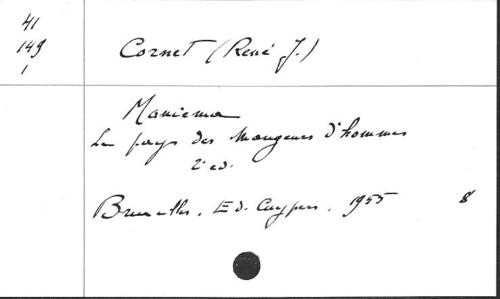 41
149
1
Cornet (René J.)
Maniema
Le pays des Mangeurs d'hommes
2e ed.
Bruxelles, Ed. Cuypers, 1955 8